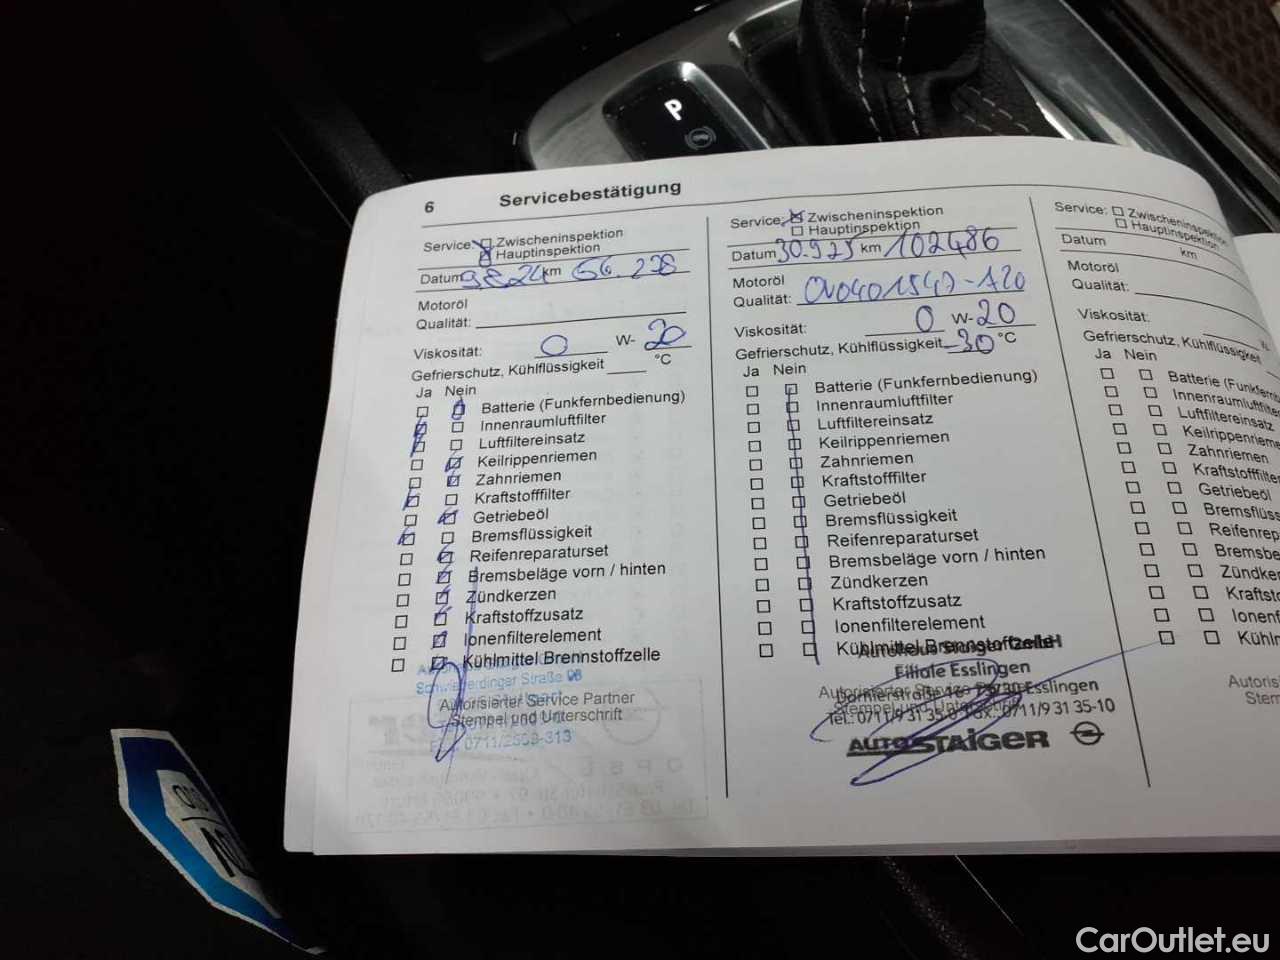 P
6 Servicebestätigung
Service: Zwischeninspektion
Hauptinspektion
Datum 9.8.24 km 56.238
Motoröl
Qualität:
Viskosität: 0 W- 20
Gefrierschutz, Kühlflüssigkeit °C
Ja Nein
Batterie (Funkfernbedienung)
Innenraumluftfilter
Luftfiltereinsatz
Keilrippenriemen
Zahnriemen
Kraftstofffilter
Getriebeöl
Bremsflüssigkeit
Reifenreparaturset
Bremsbeläge vorn / hinten
Zündkerzen
Kraftstoffzusatz
Ionenfilterelement
Kühlmittel Brennstoffzelle
Schwieberdinger Straße
Autorisierter Service Partner
Stempel und Unterschrift
0711/2509-313
Service: Zwischeninspektion
Hauptinspektion
Datum 30.9.25 km 102486
Motoröl
Qualität: OV0401547-A20
Viskosität: 0 W- 20
Gefrierschutz, Kühlflüssigkeit -30 °C
Ja Nein
Batterie (Funkfernbedienung)
Innenraumluftfilter
Luftfiltereinsatz
Keilrippenriemen
Zahnriemen
Kraftstofffilter
Getriebeöl
Bremsflüssigkeit
Reifenreparaturset
Bremsbeläge vorn / hinten
Zündkerzen
Kraftstoffzusatz
Ionenfilterelement
Kühlmittel Brennstoffzelle
Autohaus Staiger GmbH
Filiale Esslingen
Autorisierter Service
Dornierstraße 73730 Esslingen
Stempel und Unterschrift
Tel.: 0711/9 31 35-0 Fax: 0711/9 31 35-10
AUTO STAIGER
Service: Zwischeninspektion
Hauptinspektion
Datum km
Motoröl
Qualität:
Viskosität: W-
Gefrierschutz, Kühlflüssigkeit
Ja Nein
Batterie (Funkfernbedienung
Innenraumluftfilter
Luftfiltereinsatz
Keilrippenrieme
Zahnriemen
Kraftstofffilter
Getriebeöl
Bremsflüss
Reifenrepa
Bremsbe
Zündker
Kraftsto
Ionenf
Kühlm
Autoris
Stem
CarOutlet.eu